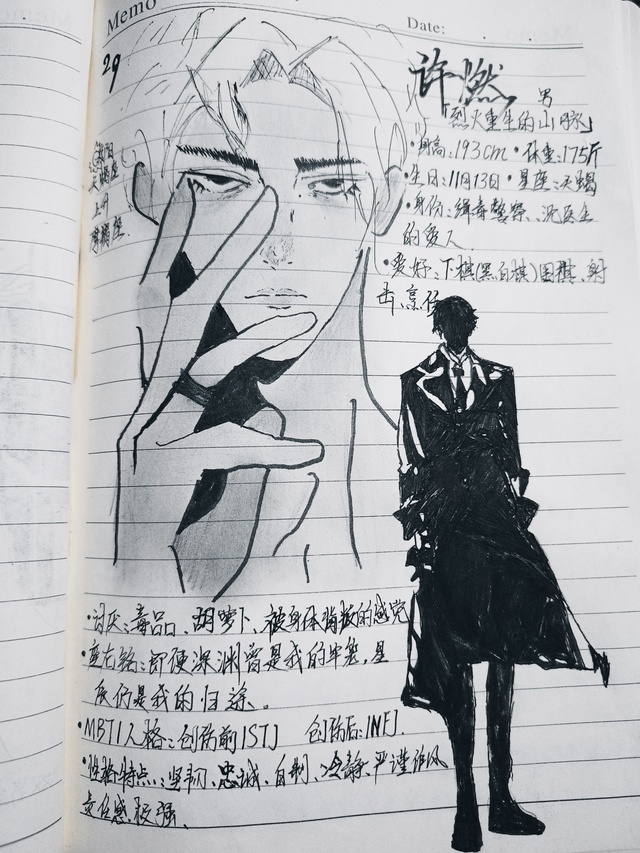 Memo
Date:
29
许燃 男
「烈火重生的山脉」
·身高:193cm ·体重:175斤
生日:11月13日 ·星座:天蝎
·身份:缉毒警察、沈医生
的爱人
太阳
天蝎座
上升
摩羯座
·爱好:下棋(黑白棋)围棋、射
击、烹饪
·讨厌:毒品、胡萝卜、被身体背叛的感觉
·座右铭:即便深渊曾是我的牢笼,星
辰仍是我的归途。
·MBTI人格:创伤前ISTJ 创伤后:INFJ.
·性格特点:坚韧、忠诚、自制、冷静、严谨作风
责任感极强、